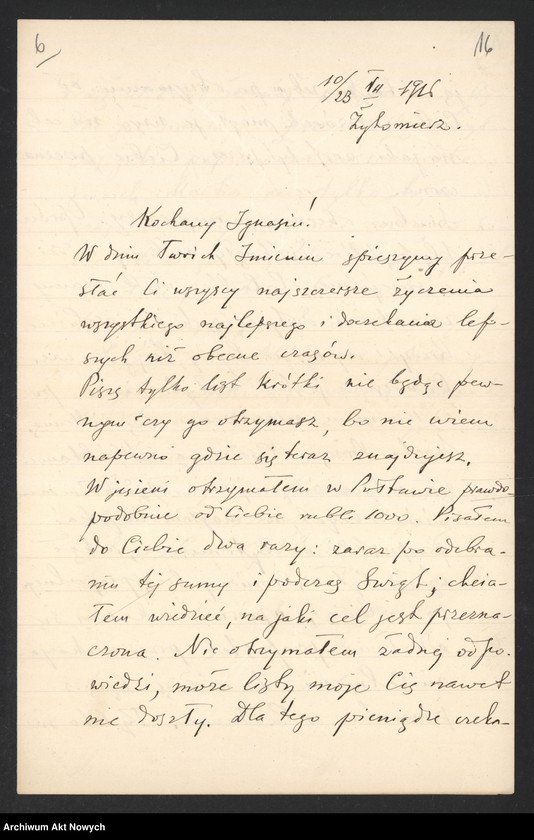 6
16
10/23 VII 1916
Żytomierz.
Kochany Ignasiu!
W dniu Twoich Imienin spieszymy prze-
słać Ci wszyscy najszczersze życzenia
wszystkiego najlepszego i doczekania lep-
szych niż obecne czasów.
Piszę tylko list krótki nie będąc pew-
nym czy go otrzymasz, bo nie wiem
napewno gdzie się teraz znajdujesz.
W jesieni otrzymałem w Połtawie prawdo-
podobnie od Ciebie rubli 1000. Pisałem
do Ciebie dwa razy: zaraz po odebra-
niu tej sumy i podczas Świąt; chcia-
łem wiedzieć, na jaki cel jest przezna-
czona. Nie otrzymałem żadnej odpo-
wiedzi, może listy moje Cię nawet
nie doszły. Dla tego pieniądze czeka-
Archiwum Akt Nowych